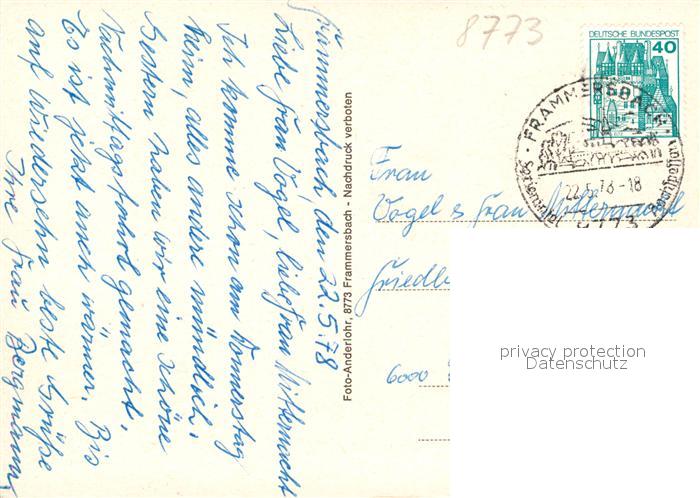 8773
Frammersbach, den 22.5.78
Liebe Frau Vogel, liebe Frau Mitternacht
Ich komme schon am Donnerstag
heim, alles andre mündlich.
Gestern haben wir eine schöne
Nachmittagsfahrt gemacht.
Es ist jetzt auch wärmer. Bis
auf Wiedersehn beste Grüße
Ihre Frau Bergmann
Foto-Anderlohr, 8773 Frammersbach - Nachdruck verboten
DEUTSCHE BUNDESPOST
40
FRAMMERSBACH
22.5.78-18
8773
Frau
Vogel & Frau Mitternacht
6000
privacy protection
Datenschutz